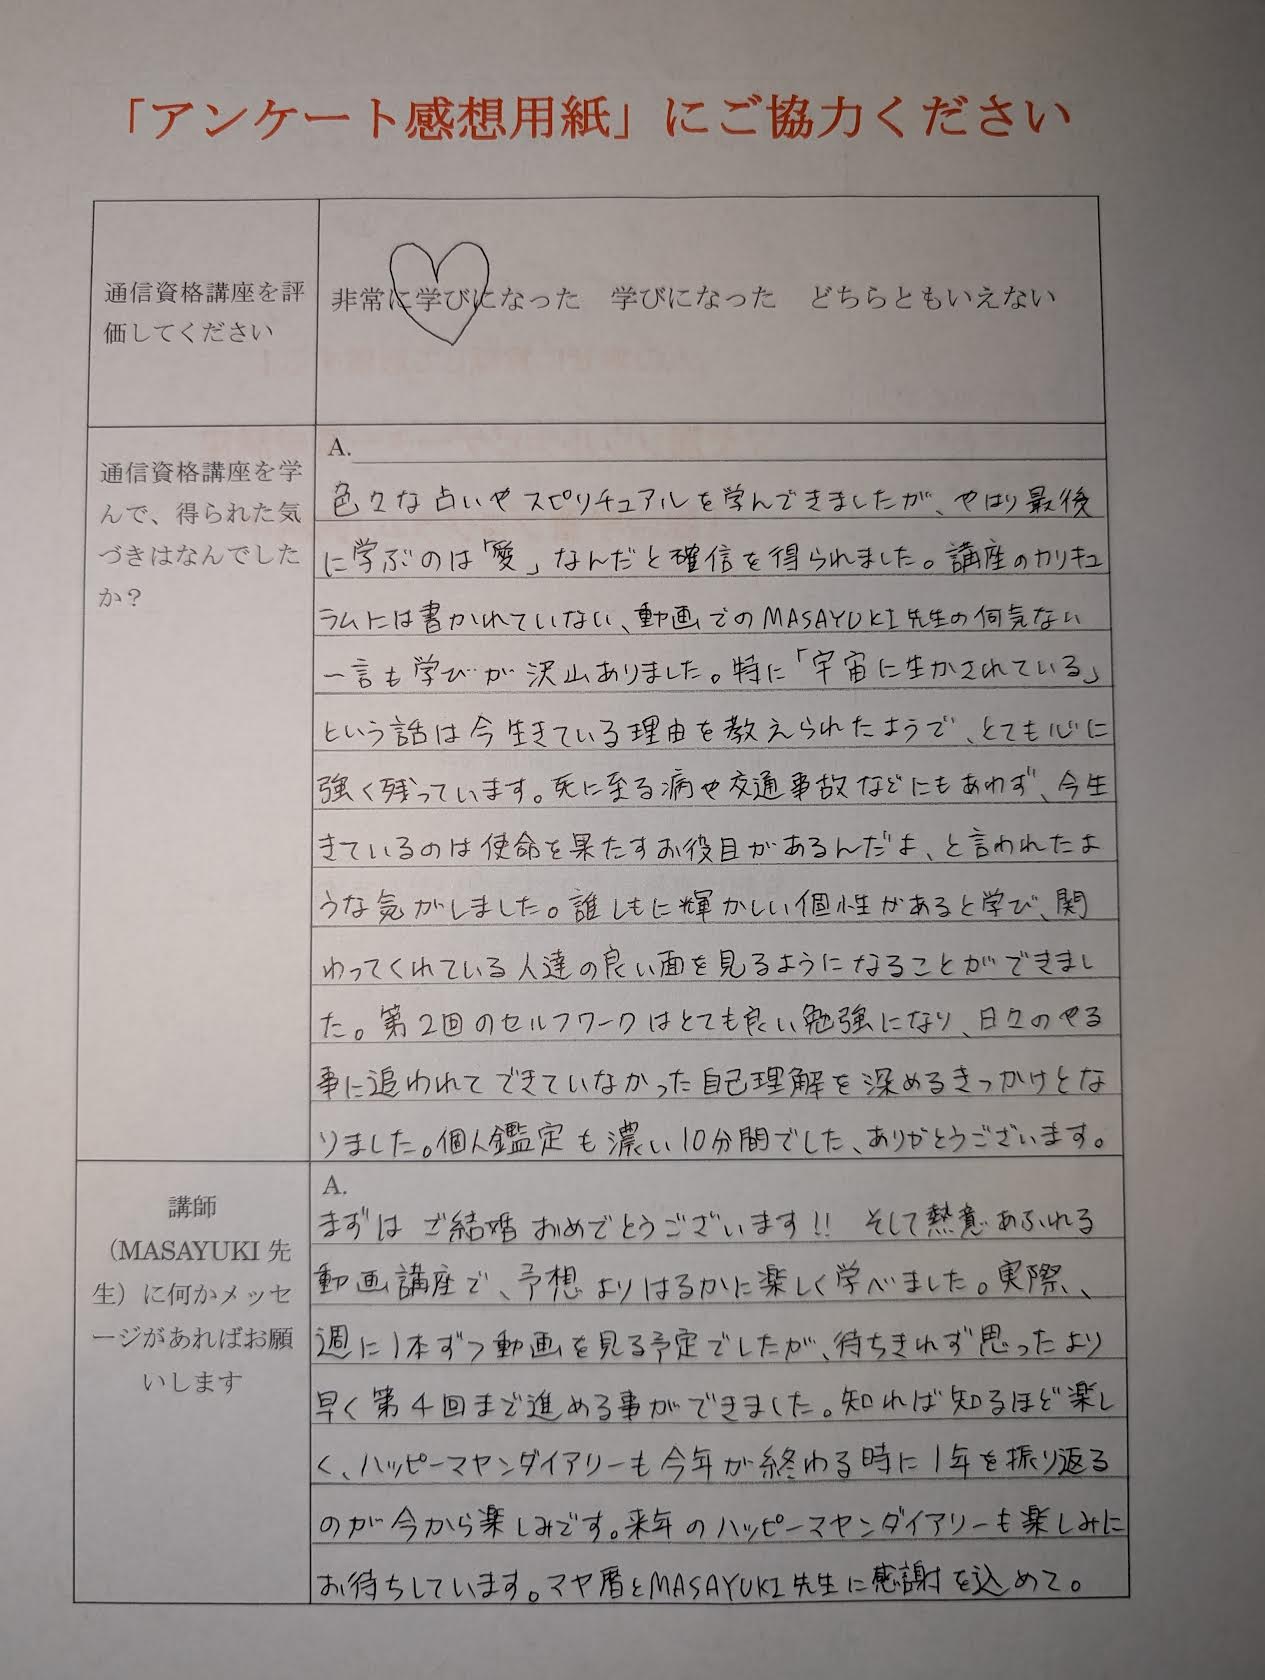 「アンケート感想用紙」にご協力ください
通信資格講座を評
価してください
非常に学びになった　学びになった　どちらともいえない
通信資格講座を学
んで、得られた気
づきはなんでした
か？
A.
色々な占いやスピリチュアルを学んできましたが、やはり最後
に学ぶのは「愛」なんだと確信を得られました。講座のカリキュ
ラムには書かれていない、動画でのMASAYUKI先生の何気ない
一言も学びが沢山ありました。特に「宇宙に生かされている」
という話は今生きている理由を教えられたようで、とても心に
強く残っています。死に至る病や交通事故などにもあわず、今生
きているのは使命を果たすお役目があるんだよ、と言われたよ
うな気がしました。誰しもに輝かしい個性があると学び、関
わってくれている人達の良い面を見るようになることができまし
た。第2回のセルフワークはとても良い勉強になり、日々のやる
事に追われてできていなかった自己理解を深めるきっかけとな
りました。個人鑑定も濃い10分間でした、ありがとうございます。
講師
（MASAYUKI 先
生）に何かメッセ
ージがあればお願
いします
A.
まずは ご結婚 おめでとうございます!! そして熱意あふれる
動画講座で、予想よりはるかに楽しく学べました。実際、
週に1本ずつ動画を見る予定でしたが、待ちきれず思ったより
早く第4回まで進める事ができました。知れば知るほど楽し
く、ハッピーマヤンダイアリーも今年が終わる時に1年を振り返る
のが今から楽しみです。来年のハッピーマヤンダイアリーも楽しみに
お待ちしています。マヤ暦とMASAYUKI先生に感謝を込めて。